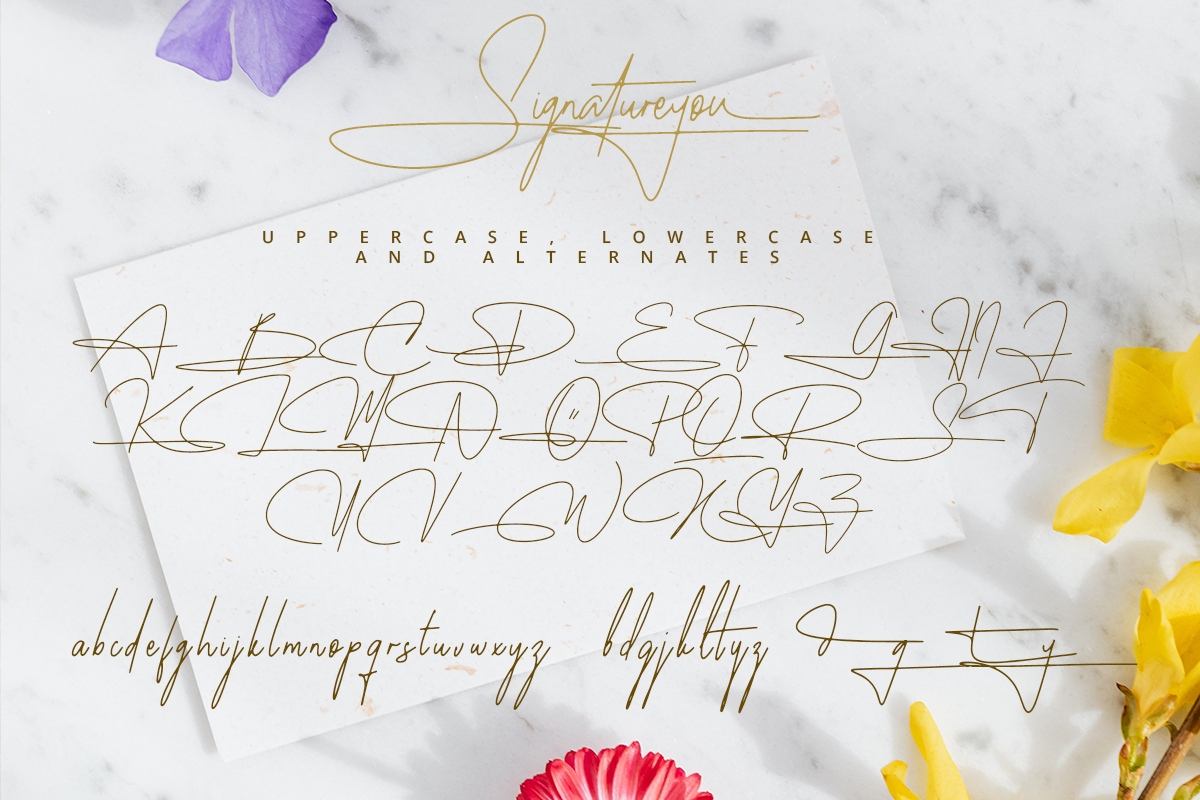 Signatureyou
UPPERCASE, LOWERCASE
AND ALTERNATES
A B C D E F G H I J
K L M N O P Q R S T
U V W X Y Z
abcdefghijklmnopqrstuvwxyz bdgjklttyz d g t y